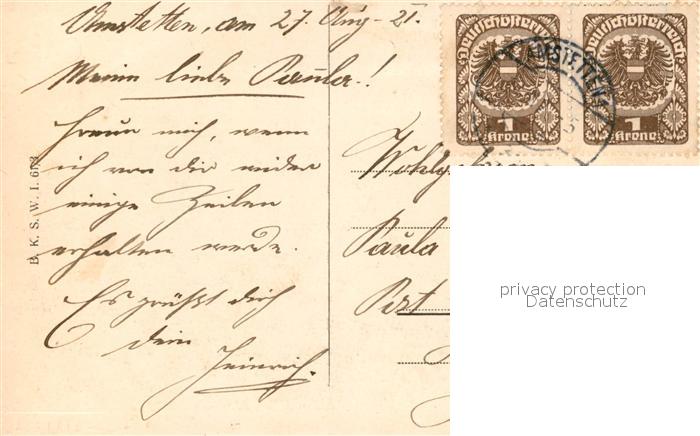 Amstetten, am 27. Aug. 21.
Meine liebe Paula!
Freue mich, wenn
ich von dir wieder
einige Zeilen
erhalten werde.
Es grüßt dich
dein
Heinrich.
B. K. S. W. I. 663
Deutschösterreich
1
Krone
Deutschösterreich
1
Krone
AMSTETTEN
Paula
privacy protection
Datenschutz